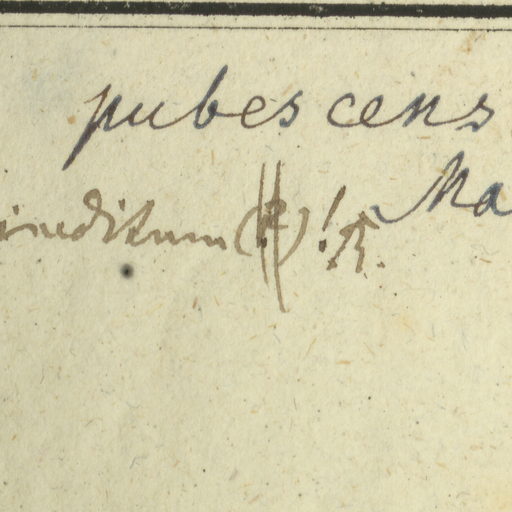 pubescens
Ma
ineditum (?) !